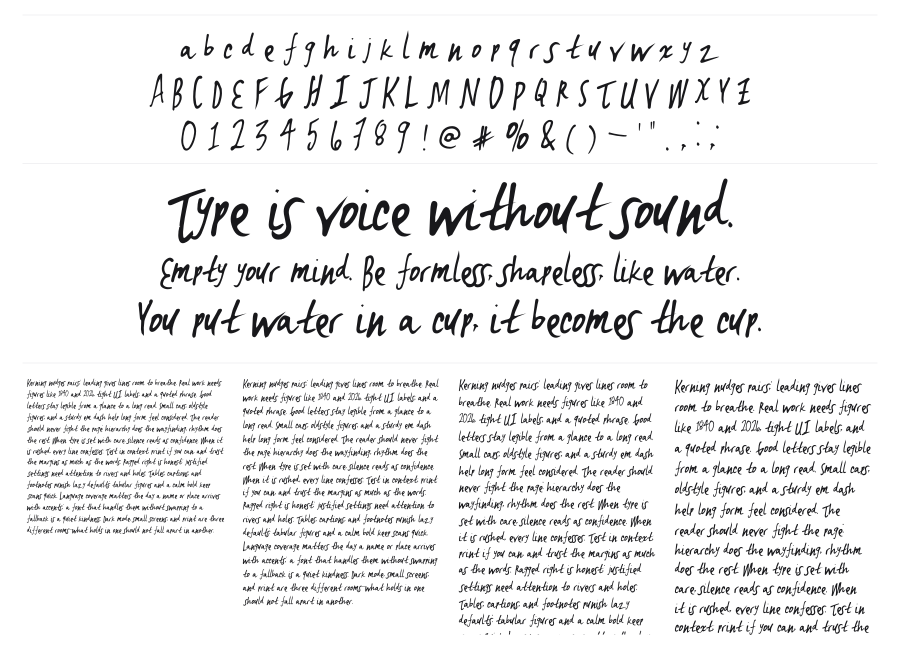 a b c d e f g h i j k l m n o p q r s t u v w x y z
A B C D E F G H I J K L M N O P Q R S T U V W X Y Z
0 1 2 3 4 5 6 7 8 9 ! @ # % & ( ) – ' " . , : ;
Type is voice without sound.
Empty your mind. Be formless, shapeless, like water.
You put water in a cup, it becomes the cup.
Kerning nudges pairs; leading gives lines room to breathe. Real work needs
figures like 1940 and 2026, tight UI labels, and a quoted phrase. Good
letters stay legible from a glance to a long read. Small caps, oldstyle
figures, and a sturdy em dash help long form feel considered. The reader
should never fight the page; hierarchy does the wayfinding, rhythm does
the rest. When type is set with care, silence reads as confidence. When it
is rushed, every line confesses. Test in context, print if you can, and trust
the margins as much as the words. Ragged right is honest; justified
settings need attention to rivers and holes. Tables, captions, and
footnotes punish lazy defaults; tabular figures and a calm bold keep
scans quick. Language coverage matters the day a name or place arrives
with accents; a font that handles them without swapping to a
fallback is a quiet kindness. Dark mode, small screens, and print are three
different rooms; what holds in one should not fall apart in another.
Kerning nudges pairs; leading gives lines room to breathe. Real
work needs figures like 1940 and 2026, tight UI labels, and a
quoted phrase. Good letters stay legible from a glance to a
long read. Small caps, oldstyle figures, and a sturdy em dash
help long form feel considered. The reader should never fight
the page; hierarchy does the wayfinding, rhythm does the
rest. When type is set with care, silence reads as confidence.
When it is rushed, every line confesses. Test in context, print
if you can, and trust the margins as much as the words.
Ragged right is honest; justified settings need attention to
rivers and holes. Tables, captions, and footnotes punish lazy
defaults; tabular figures and a calm bold keep scans quick.
Language coverage matters the day a name or place arrives
with accents; a font that handles them without swapping
to a fallback is a quiet kindness. Dark mode, small screens,
and print are three different rooms; what holds in one
should not fall apart in another.
Kerning nudges pairs; leading gives lines room to
breathe. Real work needs figures like 1940 and
2026, tight UI labels, and a quoted phrase. Good
letters stay legible from a glance to a long read.
Small caps, oldstyle figures, and a sturdy em dash
help long form feel considered. The reader should
never fight the page; hierarchy does the
wayfinding, rhythm does the rest. When type is
set with care, silence reads as confidence. When
it is rushed, every line confesses. Test in context,
print if you can, and trust the margins as much
as the words. Ragged right is honest; justified
settings need attention to rivers and holes.
Tables, captions, and footnotes punish lazy
defaults; tabular figures and a calm bold keep
Kerning nudges pairs; leading gives lines
room to breathe. Real work needs figures
like 1940 and 2026, tight UI labels, and
a quoted phrase. Good letters stay legible
from a glance to a long read. Small caps,
oldstyle figures, and a sturdy em dash
help long form feel considered. The
reader should never fight the page;
hierarchy does the wayfinding, rhythm
does the rest. When type is set with
care, silence reads as confidence. When
it is rushed, every line confesses. Test in
context, print if you can, and trust the